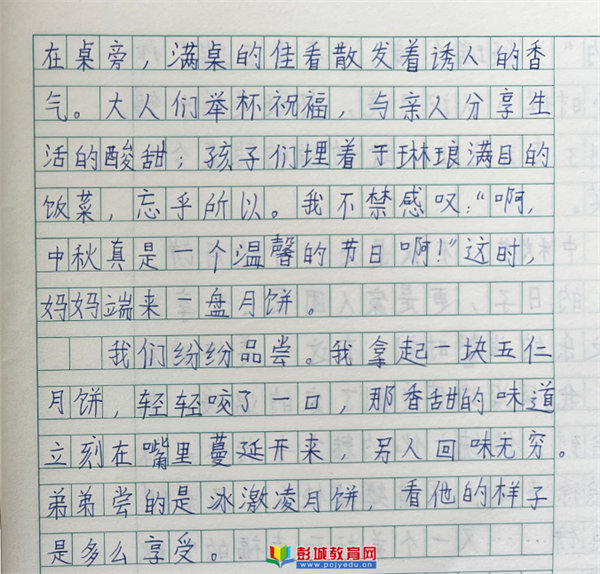 在桌旁，满桌的佳看散发着诱人的香
气。大人们举杯祝福，与亲人分享生
活的酸甜；孩子们埋着于琳琅满目的
饭菜，忘乎所以。我不禁感叹：“啊，
中秋真是一个温馨的节日啊！”这时，
妈妈端来一盘月饼。
我们纷纷品尝。我拿起一块五仁
月饼，轻轻咬了一口，那香甜的味道
立刻在嘴里蔓延开来，另人回味无穷。
弟弟尝的是冰激凌月饼，看他的样子
是多么享受。
彭城教育网
www.pcjyedu.cn